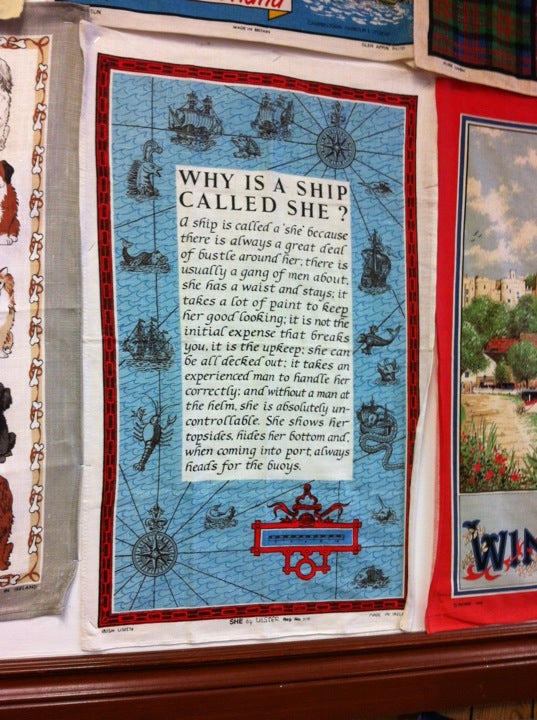 MADE IN BRITAIN
WHY IS A SHIP
CALLED SHE ?
A ship is called a 'she' because
there is always a great deal
of bustle around her; there is
usually a gang of men about,
she has a waist and stays; it
takes a lot of paint to keep
her good looking; it is not the
initial expense that breaks
you, it is the upkeep; she can
be all decked out; it takes an
experienced man to handle her
correctly; and without a man at
the helm, she is absolutely un-
controllable. She shows her
topsides, hides her bottom and,
when coming into port, always
heads for the buoys.
IRISH LINEN
SHE by ULSTER Reg No.
MADE IN
IN IRELAND
WIN